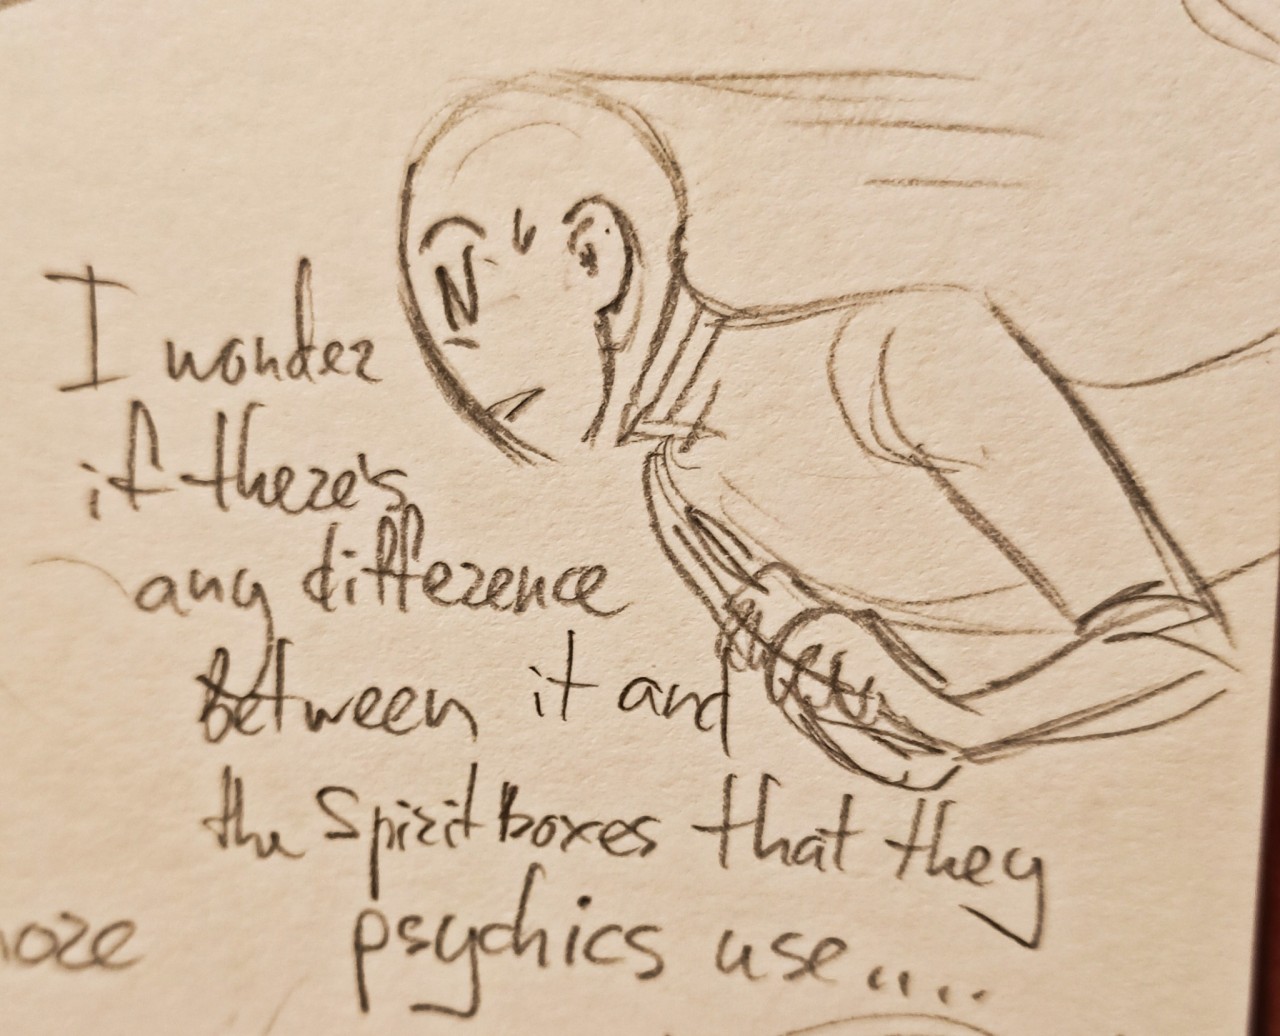 I wonder
if there's
any difference
between it and
the Spirit boxes that they
psychics use....